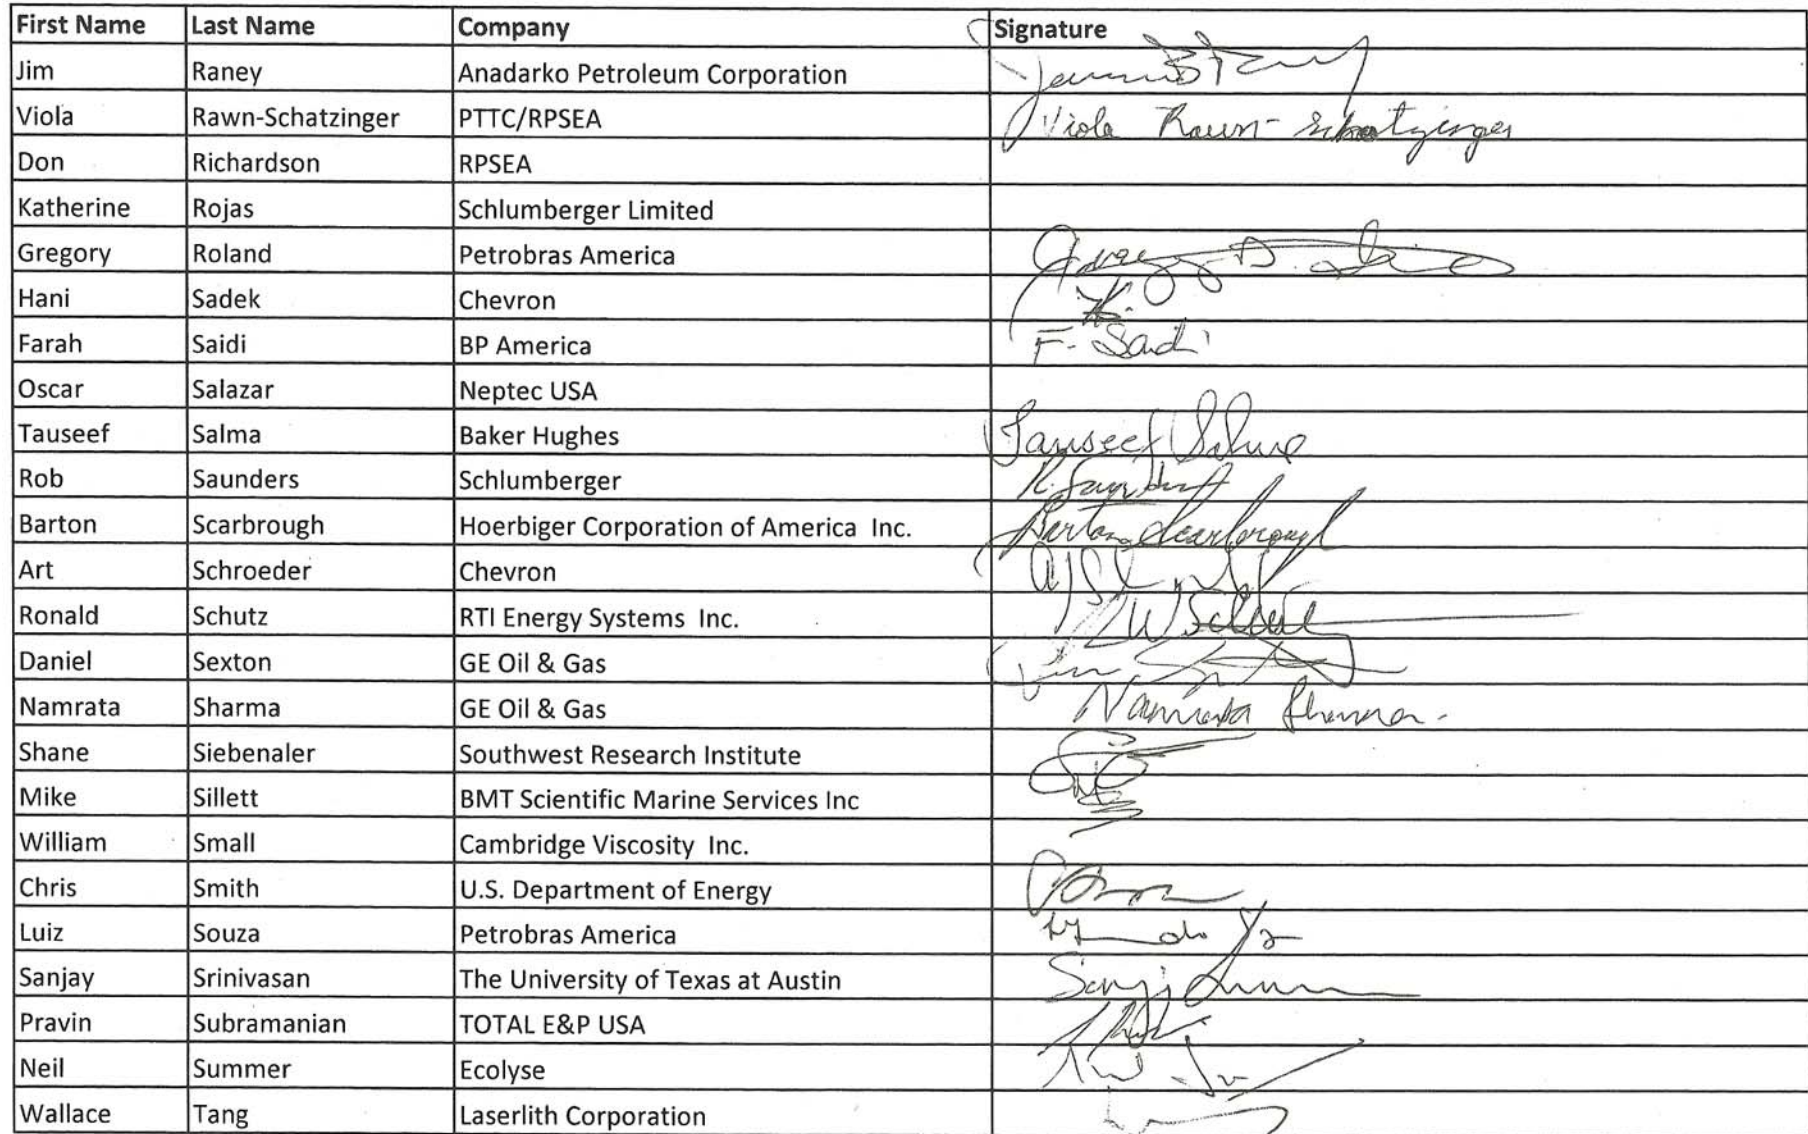 First Name Last Name Company Signature
Jim Raney Anadarko Petroleum Corporation
Viola Rawn-Schatzinger PTTC/RPSEA Viola Rawn-Schatzinger
Don Richardson RPSEA
Katherine Rojas Schlumberger Limited
Gregory Roland Petrobras America
Hani Sadek Chevron
Farah Saidi BP America F. Saidi
Oscar Salazar Neptec USA
Tauseef Salma Baker Hughes Tauseef Salma
Rob Saunders Schlumberger R. Saunders
Barton Scarbrough Hoerbiger Corporation of America Inc. Barton Scarbrough
Art Schroeder Chevron
Ronald Schutz RTI Energy Systems Inc.
Daniel Sexton GE Oil & Gas
Namrata Sharma GE Oil & Gas Namrata Sharma
Shane Siebenaler Southwest Research Institute
Mike Sillett BMT Scientific Marine Services Inc
William Small Cambridge Viscosity Inc.
Chris Smith U.S. Department of Energy
Luiz Souza Petrobras America
Sanjay Srinivasan The University of Texas at Austin
Pravin Subramanian TOTAL E&P USA
Neil Summer Ecolyse
Wallace Tang Laserlith Corporation